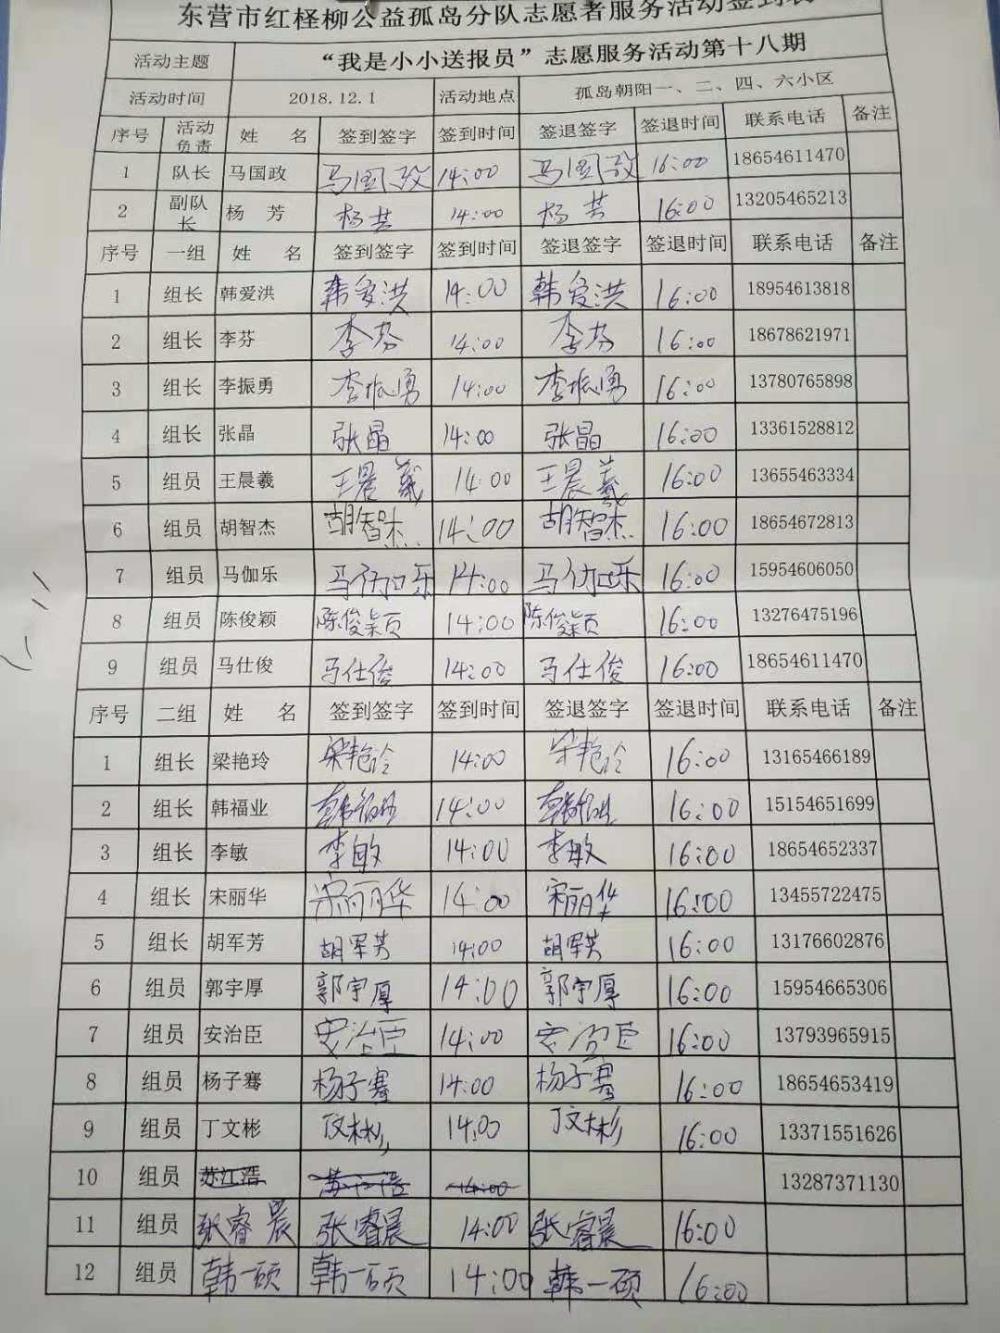 东营市红柽柳公益孤岛分队志愿者服务活动签到表
活动主题 “我是小小送报员”志愿服务活动第十八期
活动时间 2018.12.1 活动地点 孤岛朝阳一、二、四、六小区
序号 活动负责 姓 名 签到签字 签到时间 签退签字 签退时间 联系电话 备注
1 队长 马国政 马国政 14:00 马国政 16:00 18654611470
2 副队长 杨 芳 杨芳 14:00 杨芳 16:00 13205465213
序号 一组 姓 名 签到签字 签到时间 签退签字 签退时间 联系电话 备注
1 组长 韩爱洪 韩爱洪 14:00 韩爱洪 16:00 18954613818
2 组长 李芬 李芬 14:00 李芬 16:00 18678621971
3 组长 李振勇 李振勇 14:00 李振勇 16:00 13780765898
4 组长 张晶 张晶 14:00 张晶 16:00 13361528812
5 组员 王晨羲 王晨羲 14:00 王晨羲 16:00 13655463334
6 组员 胡智杰 胡智杰 14:00 胡智杰 16:00 18654672813
7 组员 马伽乐 马伽乐 14:00 马伽乐 16:00 15954606050
8 组员 陈俊颖 陈俊颖 14:00 陈俊颖 16:00 13276475196
9 组员 马仕俊 马仕俊 14:00 马仕俊 16:00 18654611470
序号 二组 姓 名 签到签字 签到时间 签退签字 签退时间 联系电话 备注
1 组长 梁艳玲 梁艳玲 14:00 梁艳玲 16:00 13165466189
2 组长 韩福业 韩福业 14:00 韩福业 16:00 15154651699
3 组长 李敏 李敏 14:00 李敏 16:00 18654652337
4 组长 宋丽华 宋丽华 14:00 宋丽华 16:00 13455722475
5 组长 胡军芳 胡军芳 14:00 胡军芳 16:00 13176602876
6 组员 郭宇厚 郭宇厚 14:00 郭宇厚 16:00 15954665306
7 组员 安治臣 安治臣 14:00 安治臣 16:00 13793965915
8 组员 杨子骞 杨子骞 14:00 杨子骞 16:00 18654653419
9 组员 丁文彬 丁文彬 14:00 丁文彬 16:00 13371551626
10 组员 苏江浩 14:00 13287371130
11 组员 张睿晨 张睿晨 14:00 张睿晨 16:00
12 组员 韩一硕 韩一硕 14:00 韩一硕 16:00